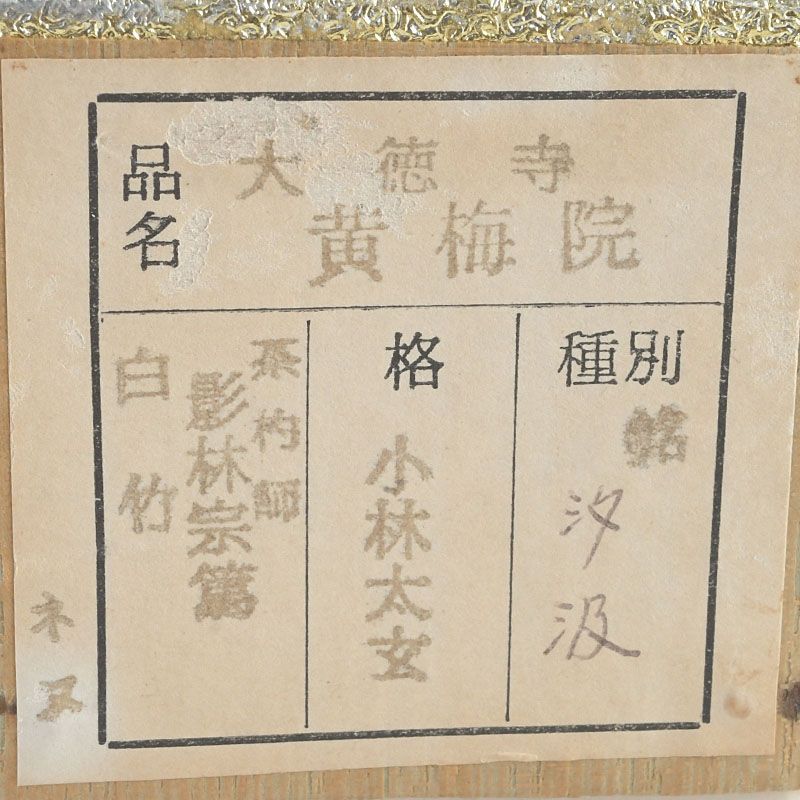 品名
大徳寺
黄梅院
種別
銘
汐汲
格
小林太玄
茶杓師
影林宗篤
白竹
ネヌ